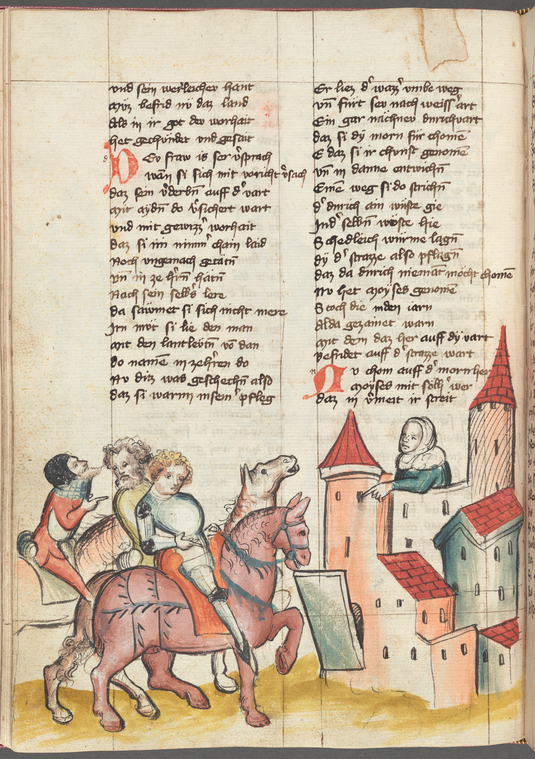 vnd sein werleicher hant
Als in ir got der worhait
het gechündet vnd geseit
Dev fraw is ser vsprach
wan si sich mit
daz sein auff d' vart
mit aydn̄ do v'sichert wart
vnd mit gewizz' worhait
daz si im nimm' chain laid
Noch vngemach getatn̄
vn̄ in ze hatn̄
Nach sein selb's lere
da sawmet si sich nicht mere
si lie den man
mit den lantlevtn̄ vō dan
do namē in zehrēn do
Nv ditz was geschechn̄ also
daz si warnn in sein' pfleg
Er liez d' warz vmbe weg
vn̄ fürt sev nach weiss' art
Ein gar nächnev durichvart
daz si dy morn für chomē
E daz si ir chvnft genomē
vn̄ in danne entwichn̄
Einē weg si do strichn̄
d' durich ain wüste gie
Ind' selbn̄ wüste hie
Schedleich würme lagn̄
dy d' strazze also pflagn̄
daz da durich niemāt möcht chomē
nv het moyses genomē
Stoch die inden iarn
Alda gezamet warn
mit dem daz her auff dy vart
befridet auff d' strazze wart
Nv chom auff d' morn her
moyses mit solh' wer
daz in ir streit